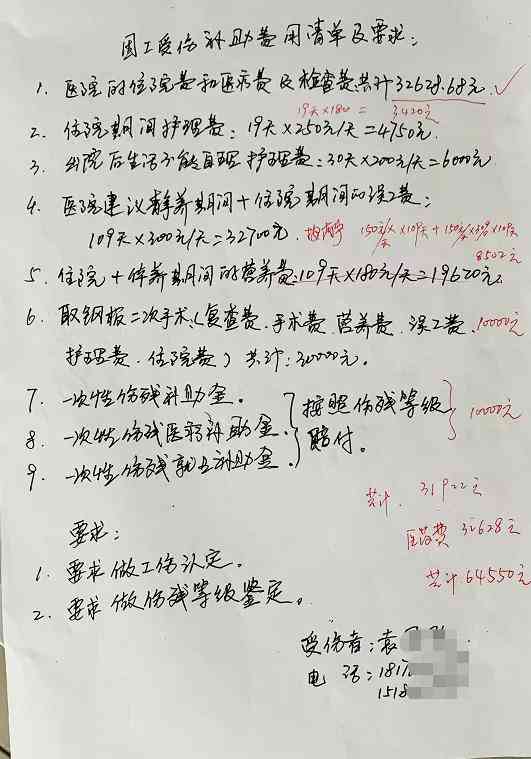 因工受伤补助费用清单及要求:
1. 医院的住院费和医疗费及检查费共计32628.68元 ✓
19天×180 = 3420元
2. 住院期间护理费:19天×250元/天=4750元.
3. 出院后生活不能自理护理费:30天×200元/天=6000元
4. 医院建议静养期间+住院期间的误工费:
109天×300元/天=32700元.
150元/天×109天+150元/天×
8502元
5. 住院+休养期间的营养费:109天×180元/天=19620元.
6. 取钢板二次手术(复查费.手术费.营养费.误工费. 10000元
护理费.住院费)共计:30000元.
7. 一次性伤残补助金.
8. 一次性伤残医疗补助金.
9. 一次性伤残就业补助金.
按照伤残等级 10000元
赔付.
共计. 31922元
医药费 32628元
共计64550元
要求:
1. 要求做工伤认定.
2. 要求做伤残等级鉴定.
受伤者:袁
电 话:1817
1518